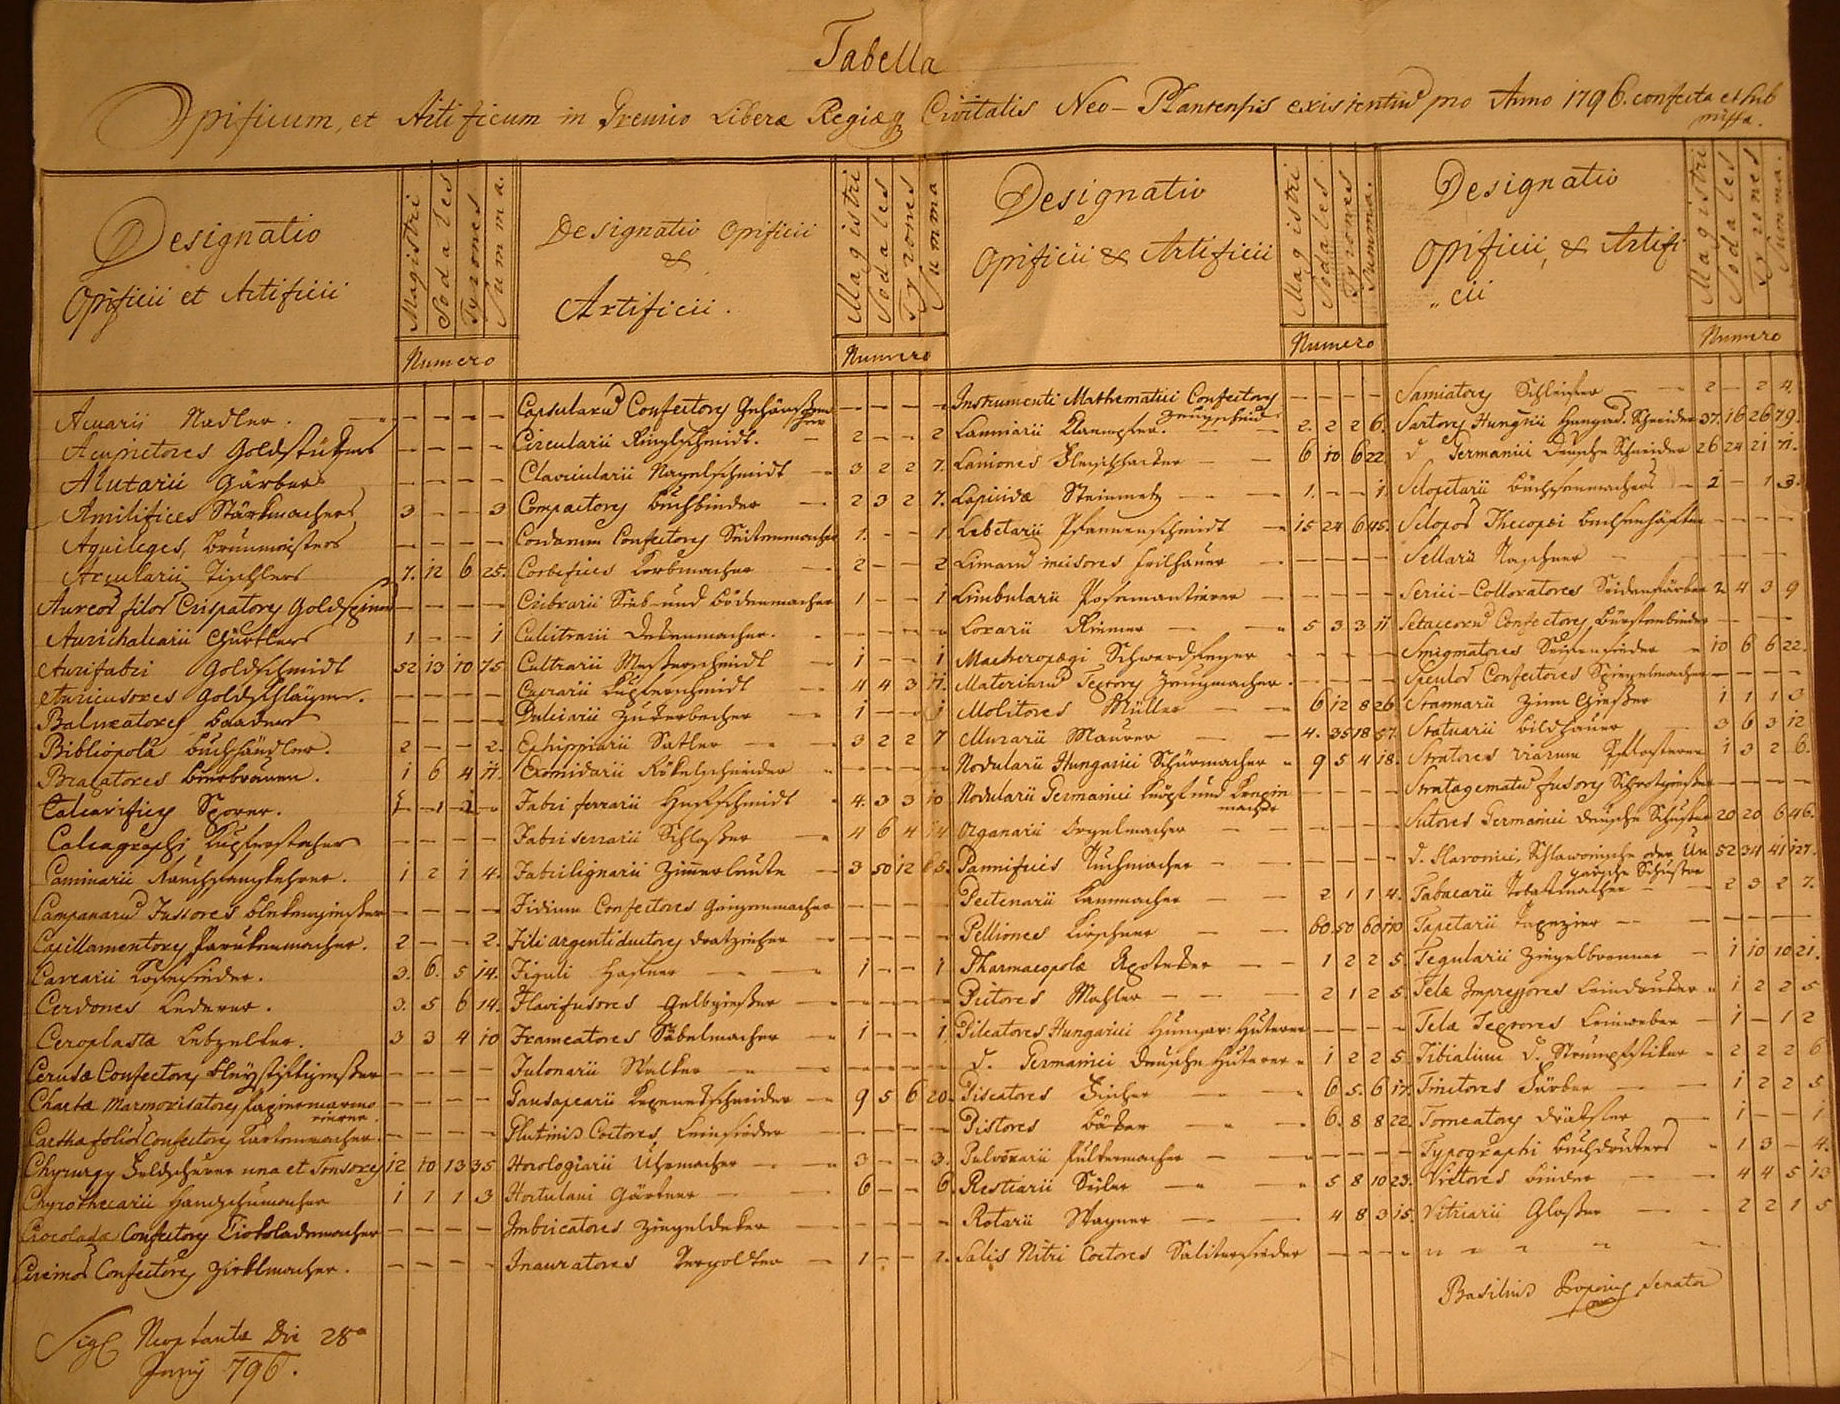 Tabella
Opificum, et Artificum in Gremio Liberæ Regiæq Civitatis Neo-Plantensis existentiu pro Anno 1796. confecta et sub
missa.
Designatio
Opificii et Artificii
Magistri Sodales Tyrones Summa.
Numero
Acuarii Nadler. - - - -
Acupictores Goldstückers - - - -
Alutarii Gärbers - - - -
Amilifices Stärkmachers 3 - - 3
Aquileges, Brunmeisters - - - -
Arcularii Tischlers 7. 12 6 25.
Aureor filor Crispatores Goldspinner - - - -
Aurichalcarii Gürtlers 1 - - 1
Aurifabri Goldschmidt 52 13 10 75
Auricusores Goldschlager. - - - -
Balneatores Baaders - - - -
Bibliopolæ Buchhändler. 2 - - 2.
Braxatores Bierbräuer. 1 6 4 11.
Calcarifices Sporer.
Calcagraphi Kupferstecher - - - -
Caminarii Rauchfangkehrer. 1 2 1 4.
Campanaru Fusores - - - -
Capillamentores Parukenmacher. 2 - - 2.
3. 6. 5 14.
Cerdones Lederer. 3. 5 6 14.
Ceroplastæ Lebzelter. 3 3 4 10
Cerusæ Confectores - - - -
Chartæ Marmorisatores - - - -
Confectores Kartenmacher. - - - -
Chyrurgy Feldscherer una et Tonsores 12 10 13 35
Chyrothecarii Handschumacher 1 1 1 3
Confectores - - - -
Confectores Zirklmacher. - - - -
Designatio Opificii
&
Artificii.
Magistri Sodales Tyrones Summa
Numero
Capsularu Confectores - - - -
Circularii Ringlschmidt. 2 - - 2
Clavicularii Nagelschmidt 3 2 2 7.
Compactores Buchbinder 2 3 2 7.
Cordarum Confectores Seitenmacher 1. - - 1
Corbifices Korbmacher 2 - - 2
Cribrarii Sieb- und Bödenmacher 1 - - 1
Culcitrarii Dekenmacher. - - - -
Cultrarii Messerschmidt 1 - - 1
Cuprarii Kupferschmidt 4 4 3 11.
Dulciarii Zukerbacher 1 - - 1
Ephippiarii Satler 3 2 2 7
- - - -
Fabri ferrarii Hufschmidt 4. 3 3 10
Fabri serrarii Schlosser 4 6 4 14
Fabri lignarii Zimmerleute 3 50 12 65.
Fidium Confectores Geigenmacher - - - -
Fili argenti ductores Dratzieher - - - -
Figuli Hafner 1 - - 1
Flavifusores Gelbgiesser - - - -
Frameatores Säbelmacher 1 - - 1
Fulonarii Walker - - - -
9 5 6 20.
Glutinis Coctores, Leimsieder - - - -
Horologiarii Uhrmacher 3 - - 3.
Hortulani Gärtner 6 - - 6
Imbricatores Ziegeldeker - - - -
Inauratores 1 - - 1.
Designatio
Opificii & Artificii
Magistri Sodales Tyrones Summa.
Numero
Instrumenti Mathematici Confectores - - - -
Klampfer. 2. 2 2 6.
Laniones Fleischhaker 6 10 6 22
Lapicidæ Steinmetz 1. - - 1.
Lebetarii Pfannenschmidt 15 24 6 45.
Limaru incisores Feilhauer - - - -
Limbularii Posomantierer - - - -
Lorarii Riemer 5 3 3 11
Macheropægi Schwerdfeger - - - -
Materiaru Textores Zeugmacher - - - -
Molitores Müller 6 12 8 26
Murarii Maurer 4. 35 18 57.
Nodularii Hungarici Schnürmacher 9 5 4 18.
Nodularii Germanici Knöpf und Krepin
macher - - - -
Organarii Orgelmacher - - - -
Pannificis Tuchmacher - - - -
Pectenarii Kammacher 2 1 1 4.
Pelliones Kürschner 60. 50 60 170
Pharmacopolæ Apoteker 1 2 2 5
Pictores Mahler 2 1 2 5
Pileatores Hungarici Hungar: Huterer - - - -
d. Germanici Deutsche Huterer 1 2 2 5.
Piscatores Fischer 6 5. 6 17.
Pistores Bäker 6. 8 8 22.
Pulverarii Pulvermacher - - - -
Restiarii Seiler 5 8 10 23.
Rotarii Wagner 4 8 3 15.
Salis Nitri Coctores Salitersieder - - - -
Designatio
Opificii, & Artifi
„ cii
Magistri Sodales Tyrones Summa.
Numero
Samiatores Schleifer 2 - 2 4.
Sartores Hungarici Hungar. Schneider 37. 16 26 79.
d Germanici Deutsche Schneider 26 24 21 71.
Sclopetarii Büchsenmachers 2 - 1 3.
- - - -
Sellarii Taschner - - - -
Serici-Colloratores Seidenfärber 2 4 3 9
Setaceoru Confectores Bürstenbinder - - - -
Smigmatores Seifensieder 10 6 6 22.
Speculor Confectores Spiegelmacher - - - -
Stannarii Zinn Giesser 1 1 1 3
Statuarii Bildhauer 3 6 3 12
Stratores viarum Pflasterer 1 3 2 6.
Stratagematu fusores - - - -
Sutores Germanici Deutsche Schuster 20 20 6 46.
d. Slavonici, Schlawonische oder 52 34 41 127.
Schuster
Tabacarii Tobakmacher 2 3 2 7.
Tapetarii Tapezier - - - -
Tegularii Ziegelbrenner 1 10 10 21.
Telæ Impressores Leindruker 1 2 2 5
Telæ Textores Leinweber 1 - 1 2
Tibialium d. Strumpfstriker 2 2 2 6
Tinctores Färber 1 2 2 5
Torneatores Dräksler 1 - - 1
Typographi Buchdrukers 1 3 - 4.
Vietores Binder 4 4 5 13
Vitriarii Glasser 2 2 1 5
Basilius Senator
Sig Neoplantæ Die 28a
Juny 796.